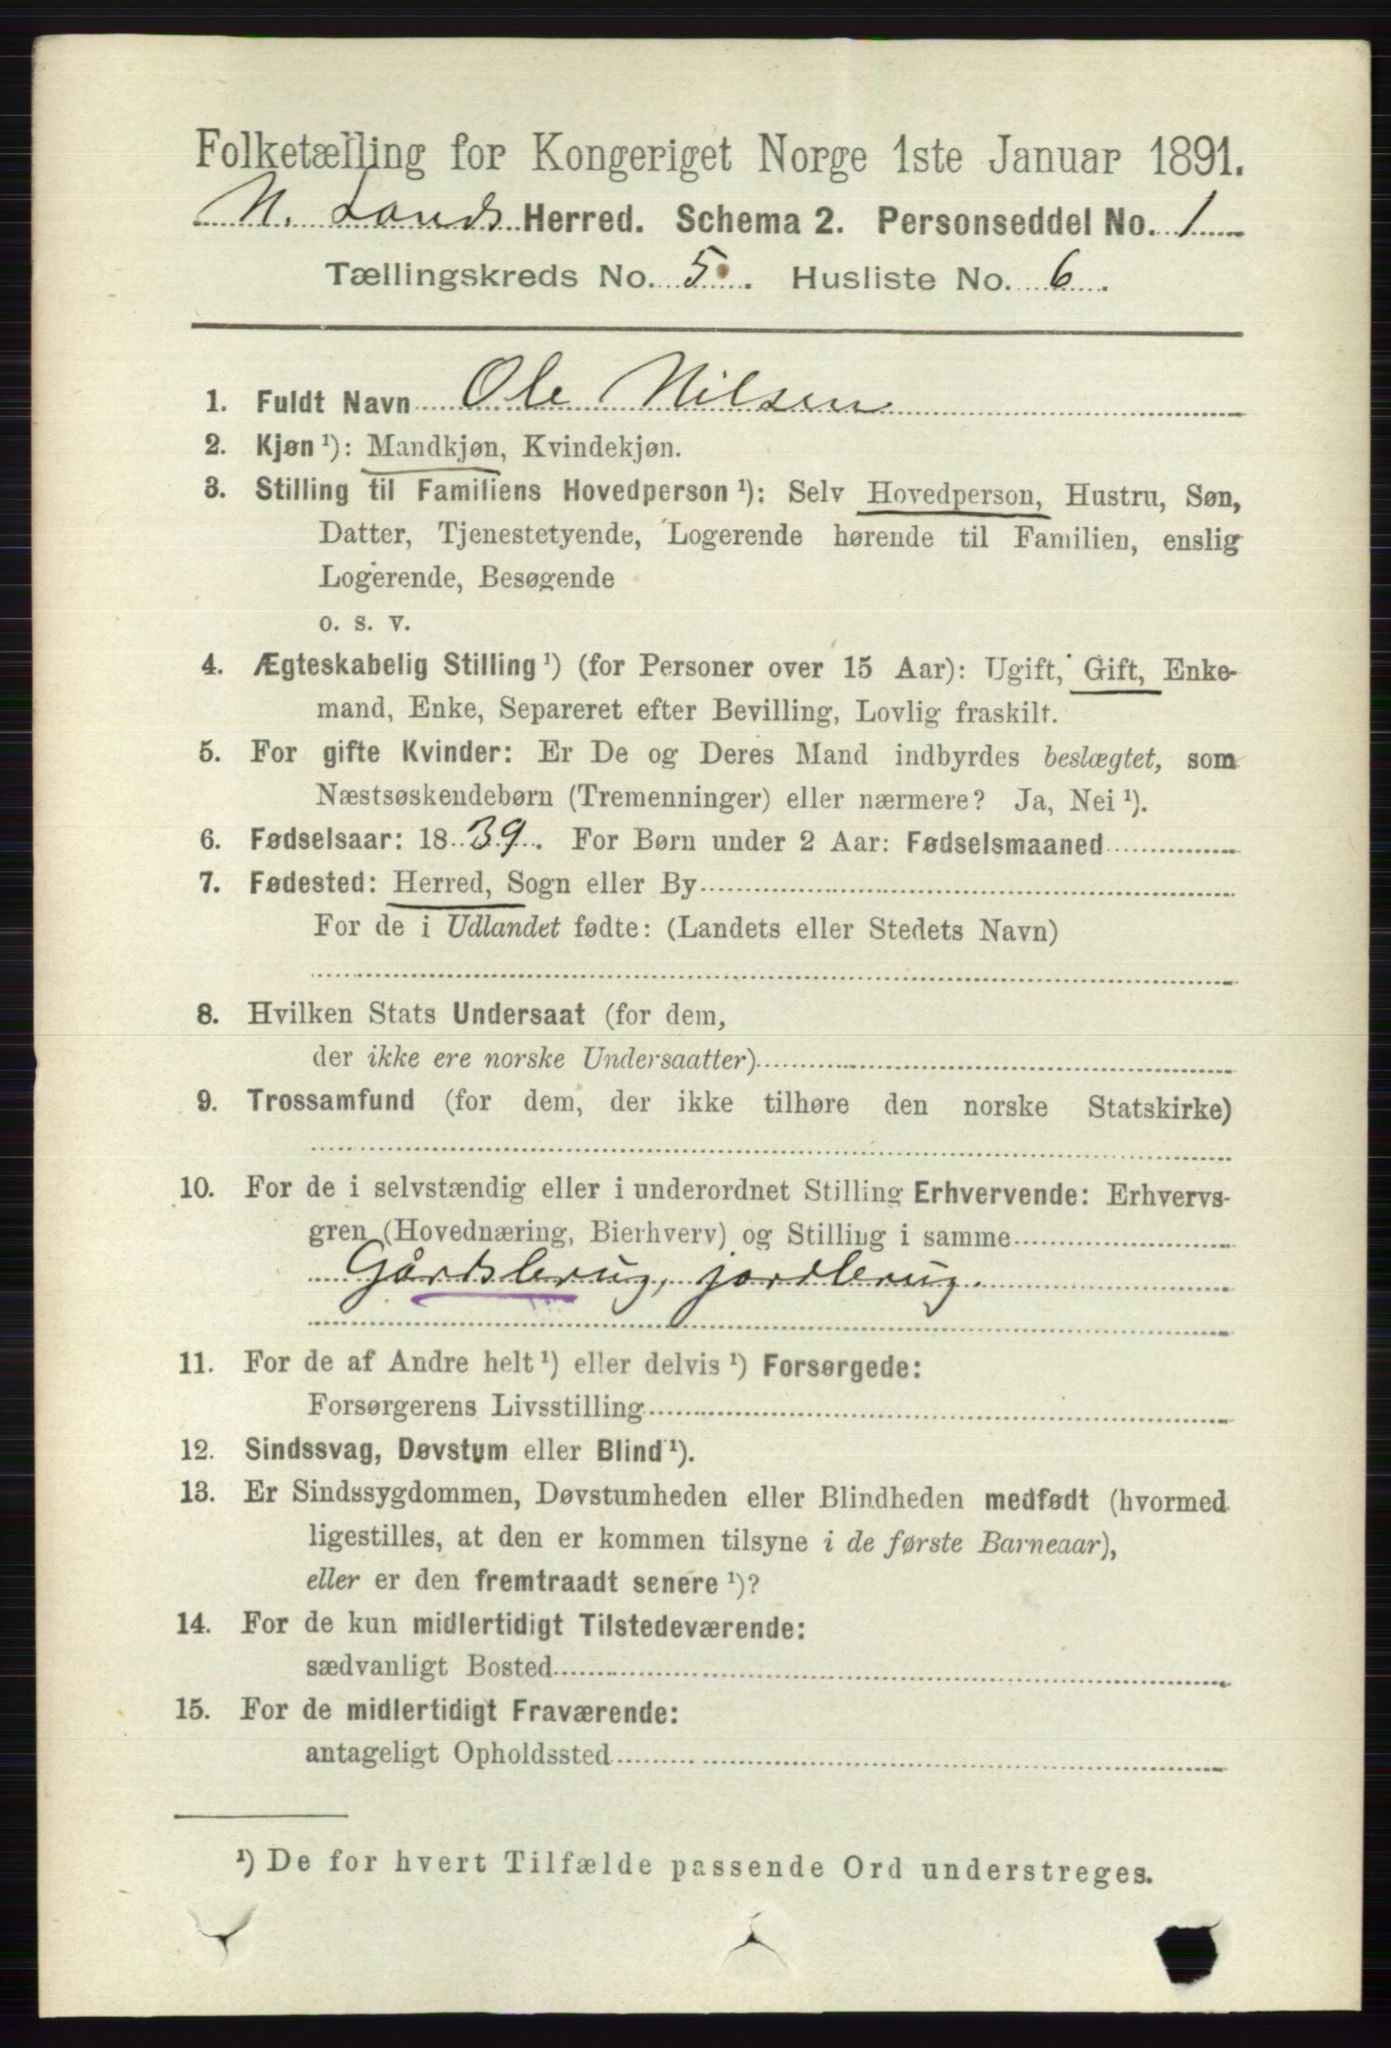 Folketælling for Kongeriget Norge 1ste Januar 1891.
N. Lands Herred. Schema 2. Personseddel No. 1
Tællingskreds No. 5. Husliste No. 6.
1. Fuldt Navn Ole Nilsen
2. Kjøn ¹): Mandkjøn, Kvindekjøn.
3. Stilling til Familiens Hovedperson ¹): Selv Hovedperson, Hustru, Søn,
Datter, Tjenestetyende, Logerende hørende til Familien, enslig
Logerende, Besøgende
o. s. v.
4. Ægteskabelig Stilling ¹) (for Personer over 15 Aar): Ugift, Gift, Enke-
mand, Enke, Separeret efter Bevilling, Lovlig fraskilt.
5. For gifte Kvinder: Er De og Deres Mand indbyrdes beslægtet, som
Næstsøskendebørn (Tremenninger) eller nærmere? Ja, Nei ¹).
6. Fødselsaar: 1839. For Børn under 2 Aar: Fødselsmaaned
7. Fødested: Herred, Sogn eller By
For de i Udlandet fødte: (Landets eller Stedets Navn)
8. Hvilken Stats Undersaat (for dem,
der ikke ere norske Undersaatter)
9. Trossamfund (for dem, der ikke tilhøre den norske Statskirke)
10. For de i selvstændig eller i underordnet Stilling Erhvervende: Erhvervs-
gren (Hovednæring, Bierhverv) og Stilling i samme
Gårdsbrug, jordbrug.
11. For de af Andre helt ¹) eller delvis ¹) Forsørgede:
Forsørgerens Livsstilling
12. Sindssvag, Døvstum eller Blind ¹).
13. Er Sindssygdommen, Døvstumheden eller Blindheden medfødt (hvormed
ligestilles, at den er kommen tilsyne i de første Barneaar),
eller er den fremtraadt senere ¹)?
14. For de kun midlertidigt Tilstedeværende:
sædvanligt Bosted
15. For de midlertidigt Fraværende:
antageligt Opholdssted
¹) De for hvert Tilfælde passende Ord understreges.